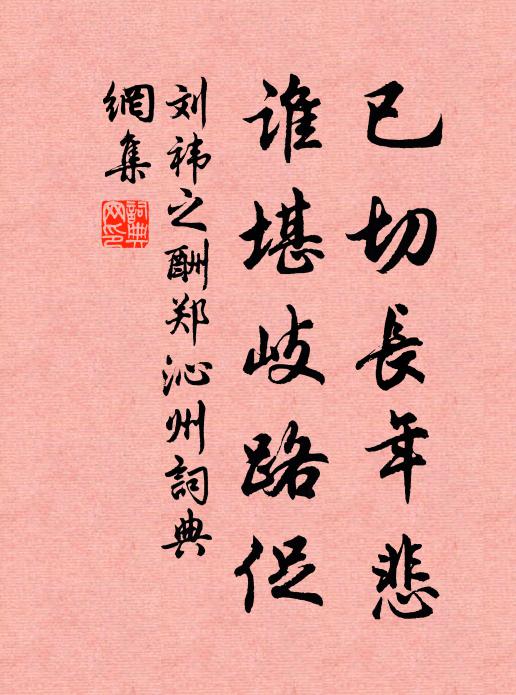 已切長年悲
谁堪歧路促
刘祎之酬郑沁州詞典
網集
詞典
网印